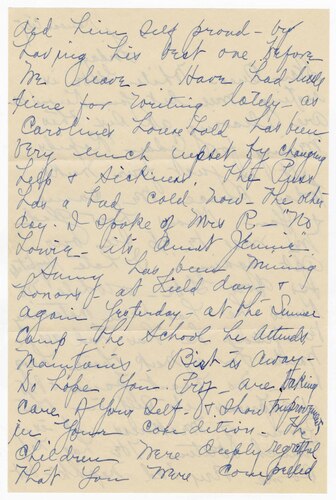 did him self proud - by
having his best one before
we leave - Have had little
time for writing lately - as
Caroline's household has been
very much upset by changing
help & sickness. The Puss
has a bad cold now - The other
day. I spoke of Mrs R - "No
Lowie - it's Aunt Jennie.
Sunny has been Mining
honors at Field day - &
again Yesterday - at the Summer
Camp - The School he Attends
Maintains. Bert is away -
Do hope you are taking
care of Your Self - & show improvement
in Your condition - The
children were deeply regretful
That you were compelled